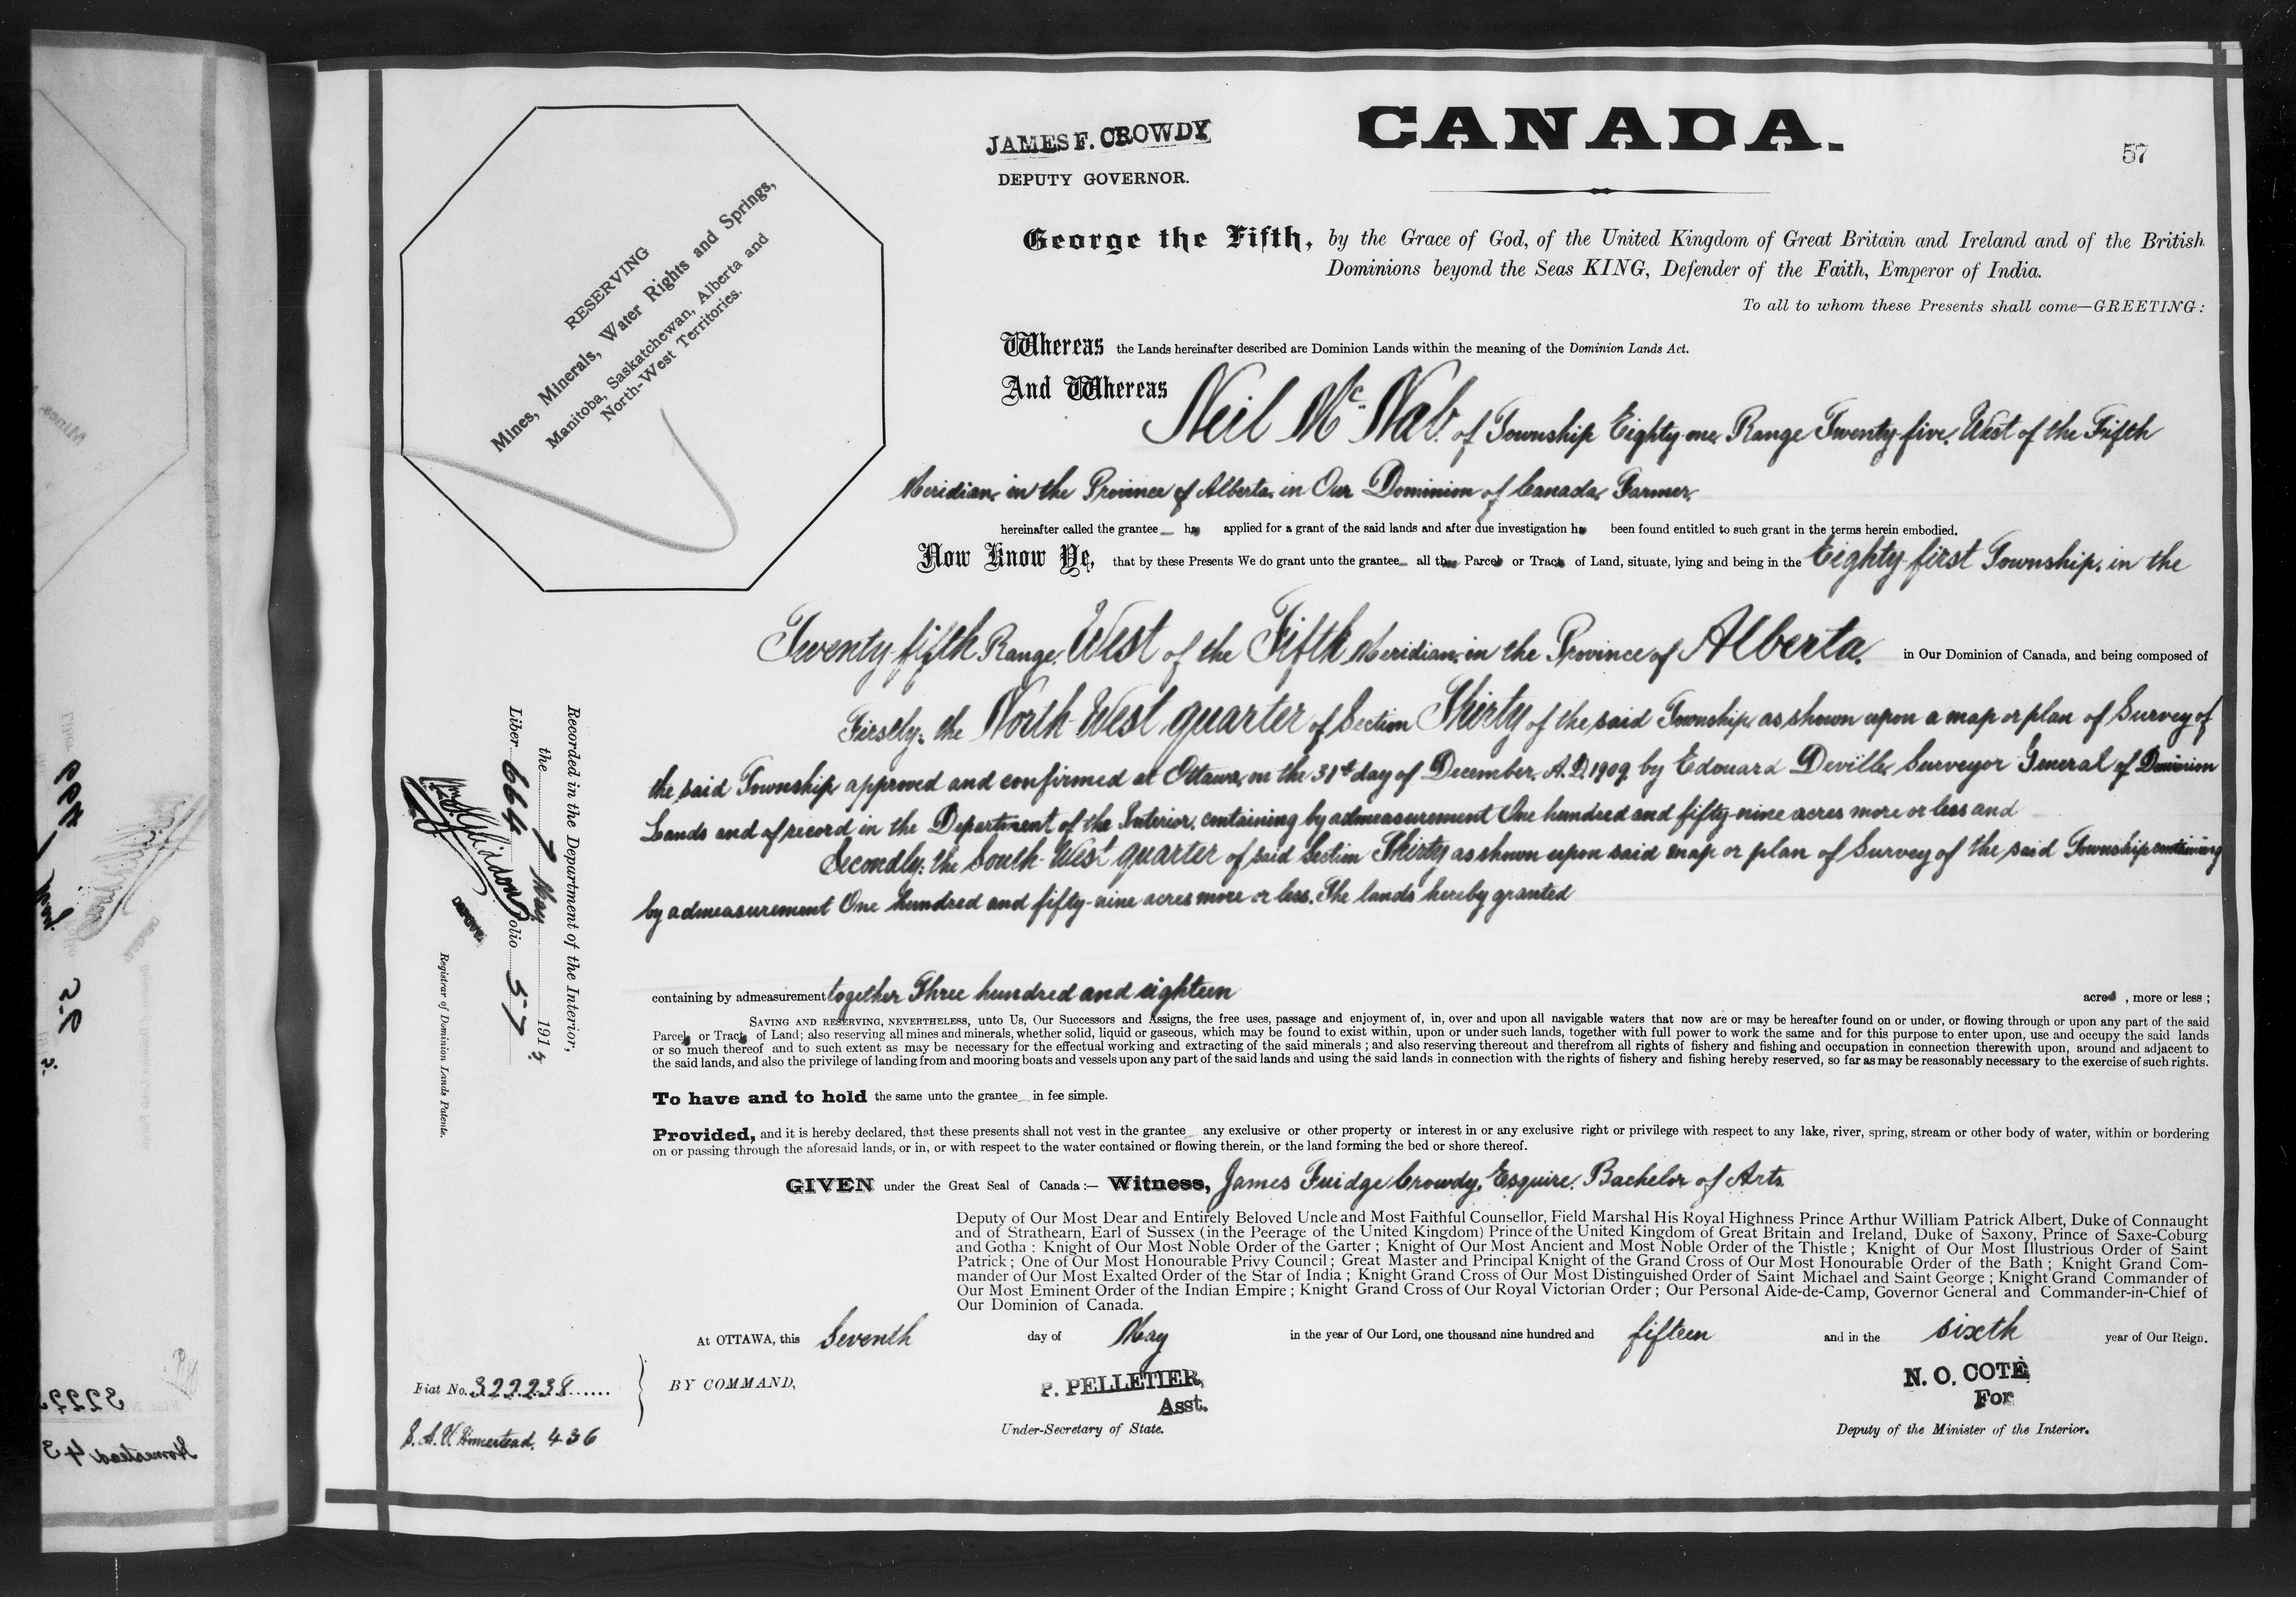 CANADA.
57
JAMES F. CROWDY
DEPUTY GOVERNOR.
RESERVING
Mines, Minerals, Water Rights and Springs,
Manitoba, Saskatchewan, Alberta and
North-West Territories.
George the Fifth, by the Grace of God, of the United Kingdom of Great Britain and Ireland and of the British
Dominions beyond the Seas KING, Defender of the Faith, Emperor of India.
To all to whom these Presents shall come—GREETING:
Whereas the Lands hereinafter described are Dominion Lands within the meaning of the Dominion Lands Act.
And Whereas Neil Mc Nab. of Township Eighty-one, Range Twenty-five, West of the Fifth
Meridian, in the Province of Alberta, in Our Dominion of Canada, Farmer,
hereinafter called the grantee has applied for a grant of the said lands and after due investigation has been found entitled to such grant in the terms herein embodied.
Now Know Ye, that by these Presents We do grant unto the grantee all those Parcels or Tracts of Land, situate, lying and being in the Eighty-first Township, in the
Twenty-fifth Range, West of the Fifth Meridian, in the Province of Alberta, in Our Dominion of Canada, and being composed of
Firstly: the North-West quarter of Section Thirty of the said Township, as shown upon a map or plan of Survey of
the said Township approved and confirmed at Ottawa, on the 31st day of December, A.D. 1909, by Edouard Deville, Surveyor General of Dominion
Lands and of record in the Department of the Interior, containing by admeasurement One hundred and fifty-nine acres more or less and
Secondly: the South-West quarter of said Section Thirty as shown upon said map or plan of Survey of the said Township containing
by admeasurement One hundred and fifty-nine acres more or less. The lands hereby granted
containing by admeasurement together Three hundred and eighteen acres , more or less ;
SAVING AND RESERVING, NEVERTHELESS, unto Us, Our Successors and Assigns, the free uses, passage and enjoyment of, in, over and upon all navigable waters that now are or may be hereafter found on or under, or flowing through or upon any part of the said
Parcels or Tracts of Land; also reserving all mines and minerals, whether solid, liquid or gaseous, which may be found to exist within, upon or under such lands, together with full power to work the same and for this purpose to enter upon, use and occupy the said lands
or so much thereof and to such extent as may be necessary for the effectual working and extracting of the said minerals ; and also reserving thereout and therefrom all rights of fishery and fishing and occupation in connection therewith upon, around and adjacent to
the said lands, and also the privilege of landing from and mooring boats and vessels upon any part of the said lands and using the said lands in connection with the rights of fishery and fishing hereby reserved, so far as may be reasonably necessary to the exercise of such rights.
To have and to hold the same unto the grantee in fee simple.
Provided, and it is hereby declared, that these presents shall not vest in the grantee any exclusive or other property or interest in or any exclusive right or privilege with respect to any lake, river, spring, stream or other body of water, within or bordering
on or passing through the aforesaid lands, or in, or with respect to the water contained or flowing therein, or the land forming the bed or shore thereof.
GIVEN under the Great Seal of Canada :— Witness, James Fuidge Crowdy, Esquire, Bachelor of Arts,
Deputy of Our Most Dear and Entirely Beloved Uncle and Most Faithful Counsellor, Field Marshal His Royal Highness Prince Arthur William Patrick Albert, Duke of Connaught
and of Strathearn, Earl of Sussex (in the Peerage of the United Kingdom) Prince of the United Kingdom of Great Britain and Ireland, Duke of Saxony, Prince of Saxe-Coburg
and Gotha : Knight of Our Most Noble Order of the Garter ; Knight of Our Most Ancient and Most Noble Order of the Thistle ; Knight of Our Most Illustrious Order of Saint
Patrick ; One of Our Most Honourable Privy Council ; Great Master and Principal Knight of the Grand Cross of Our Most Honourable Order of the Bath ; Knight Grand Com-
mander of Our Most Exalted Order of the Star of India ; Knight Grand Cross of Our Most Distinguished Order of Saint Michael and Saint George ; Knight Grand Commander of
Our Most Eminent Order of the Indian Empire ; Knight Grand Cross of Our Royal Victorian Order ; Our Personal Aide-de-Camp, Governor General and Commander-in-Chief of
Our Dominion of Canada.
At OTTAWA, this Seventh day of May in the year of Our Lord, one thousand nine hundred and fifteen and in the sixth year of Our Reign.
BY COMMAND,
P. PELLETIER,
Asst.
Under-Secretary of State.
N. O. COTÉ
For
Deputy of the Minister of the Interior.
Fiat No. 322238
S.A.V. Homestead. 436
Recorded in the Department of the Interior,
the 7 May 1915
Liber 664 Folio 57
DEPUTY
Registrar of Dominion Lands Patents.